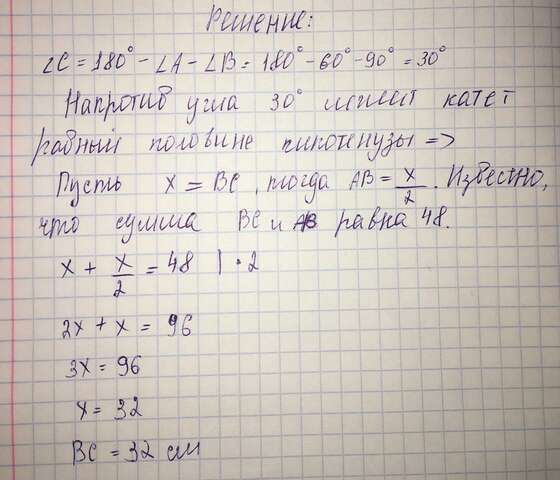 Решение:
∠C = 180° - ∠A - ∠B = 180° - 60° - 90° = 30°
Напротив угла 30° лежит катет
равный половине гипотенузы =>
Пусть x = BC, тогда AB = x/2. Известно,
что сумма BC и AB равна 48.
x + x/2 = 48 | · 2
2x + x = 96
3x = 96
x = 32
BC = 32 см